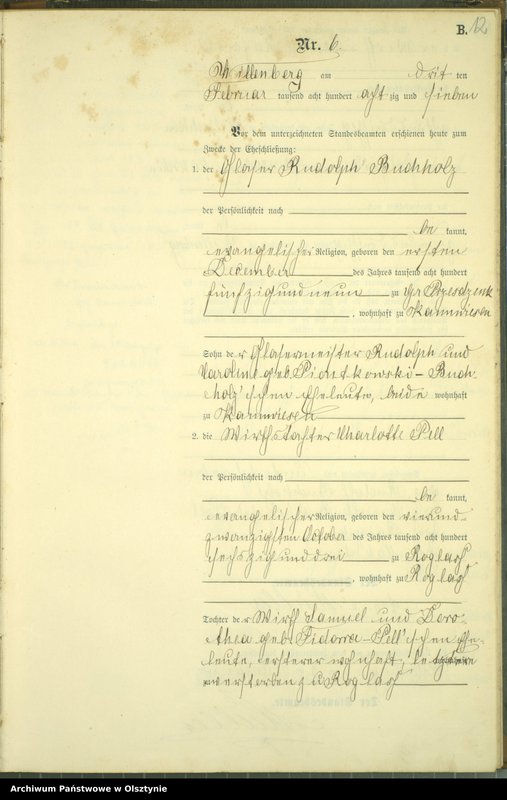 B. 12
Nr. 6.
Willenberg am drit ten
Februar tausend acht hundert acht zig und sieben
Vor dem unterzeichneten Standesbeamten erschienen heute zum
Zwecke der Eheschließung:
1. der Glaser Rudolph Buchholz
der Persönlichkeit nach
be kannt,
evangelischer Religion, geboren den ersten
December des Jahres tausend acht hundert
fünfzig und neun zu Gr Przesdzenk
, wohnhaft zu Kannwiesen
Sohn der Glasermeister Rudolph und
Caroline geb. Piontkowski - Buch-
holz'schen Eheleute, beide wohnhaft
zu Kannwiesen
2. die Wirthstochter Charlotte Pell
der Persönlichkeit nach
be kannt,
evangelischer Religion, geboren den vierund-
zwanzigsten October des Jahres tausend acht hundert
sechszig und drei zu Roglas
, wohnhaft zu Roglas
Tochter der Wirth Samuel und Doro-
thea geb. Fidorra - Pell'schen Ehe-
leute, ersterer wohnhaft, letztere
verstorben zu Roglas
Archiwum Państwowe w Olsztynie